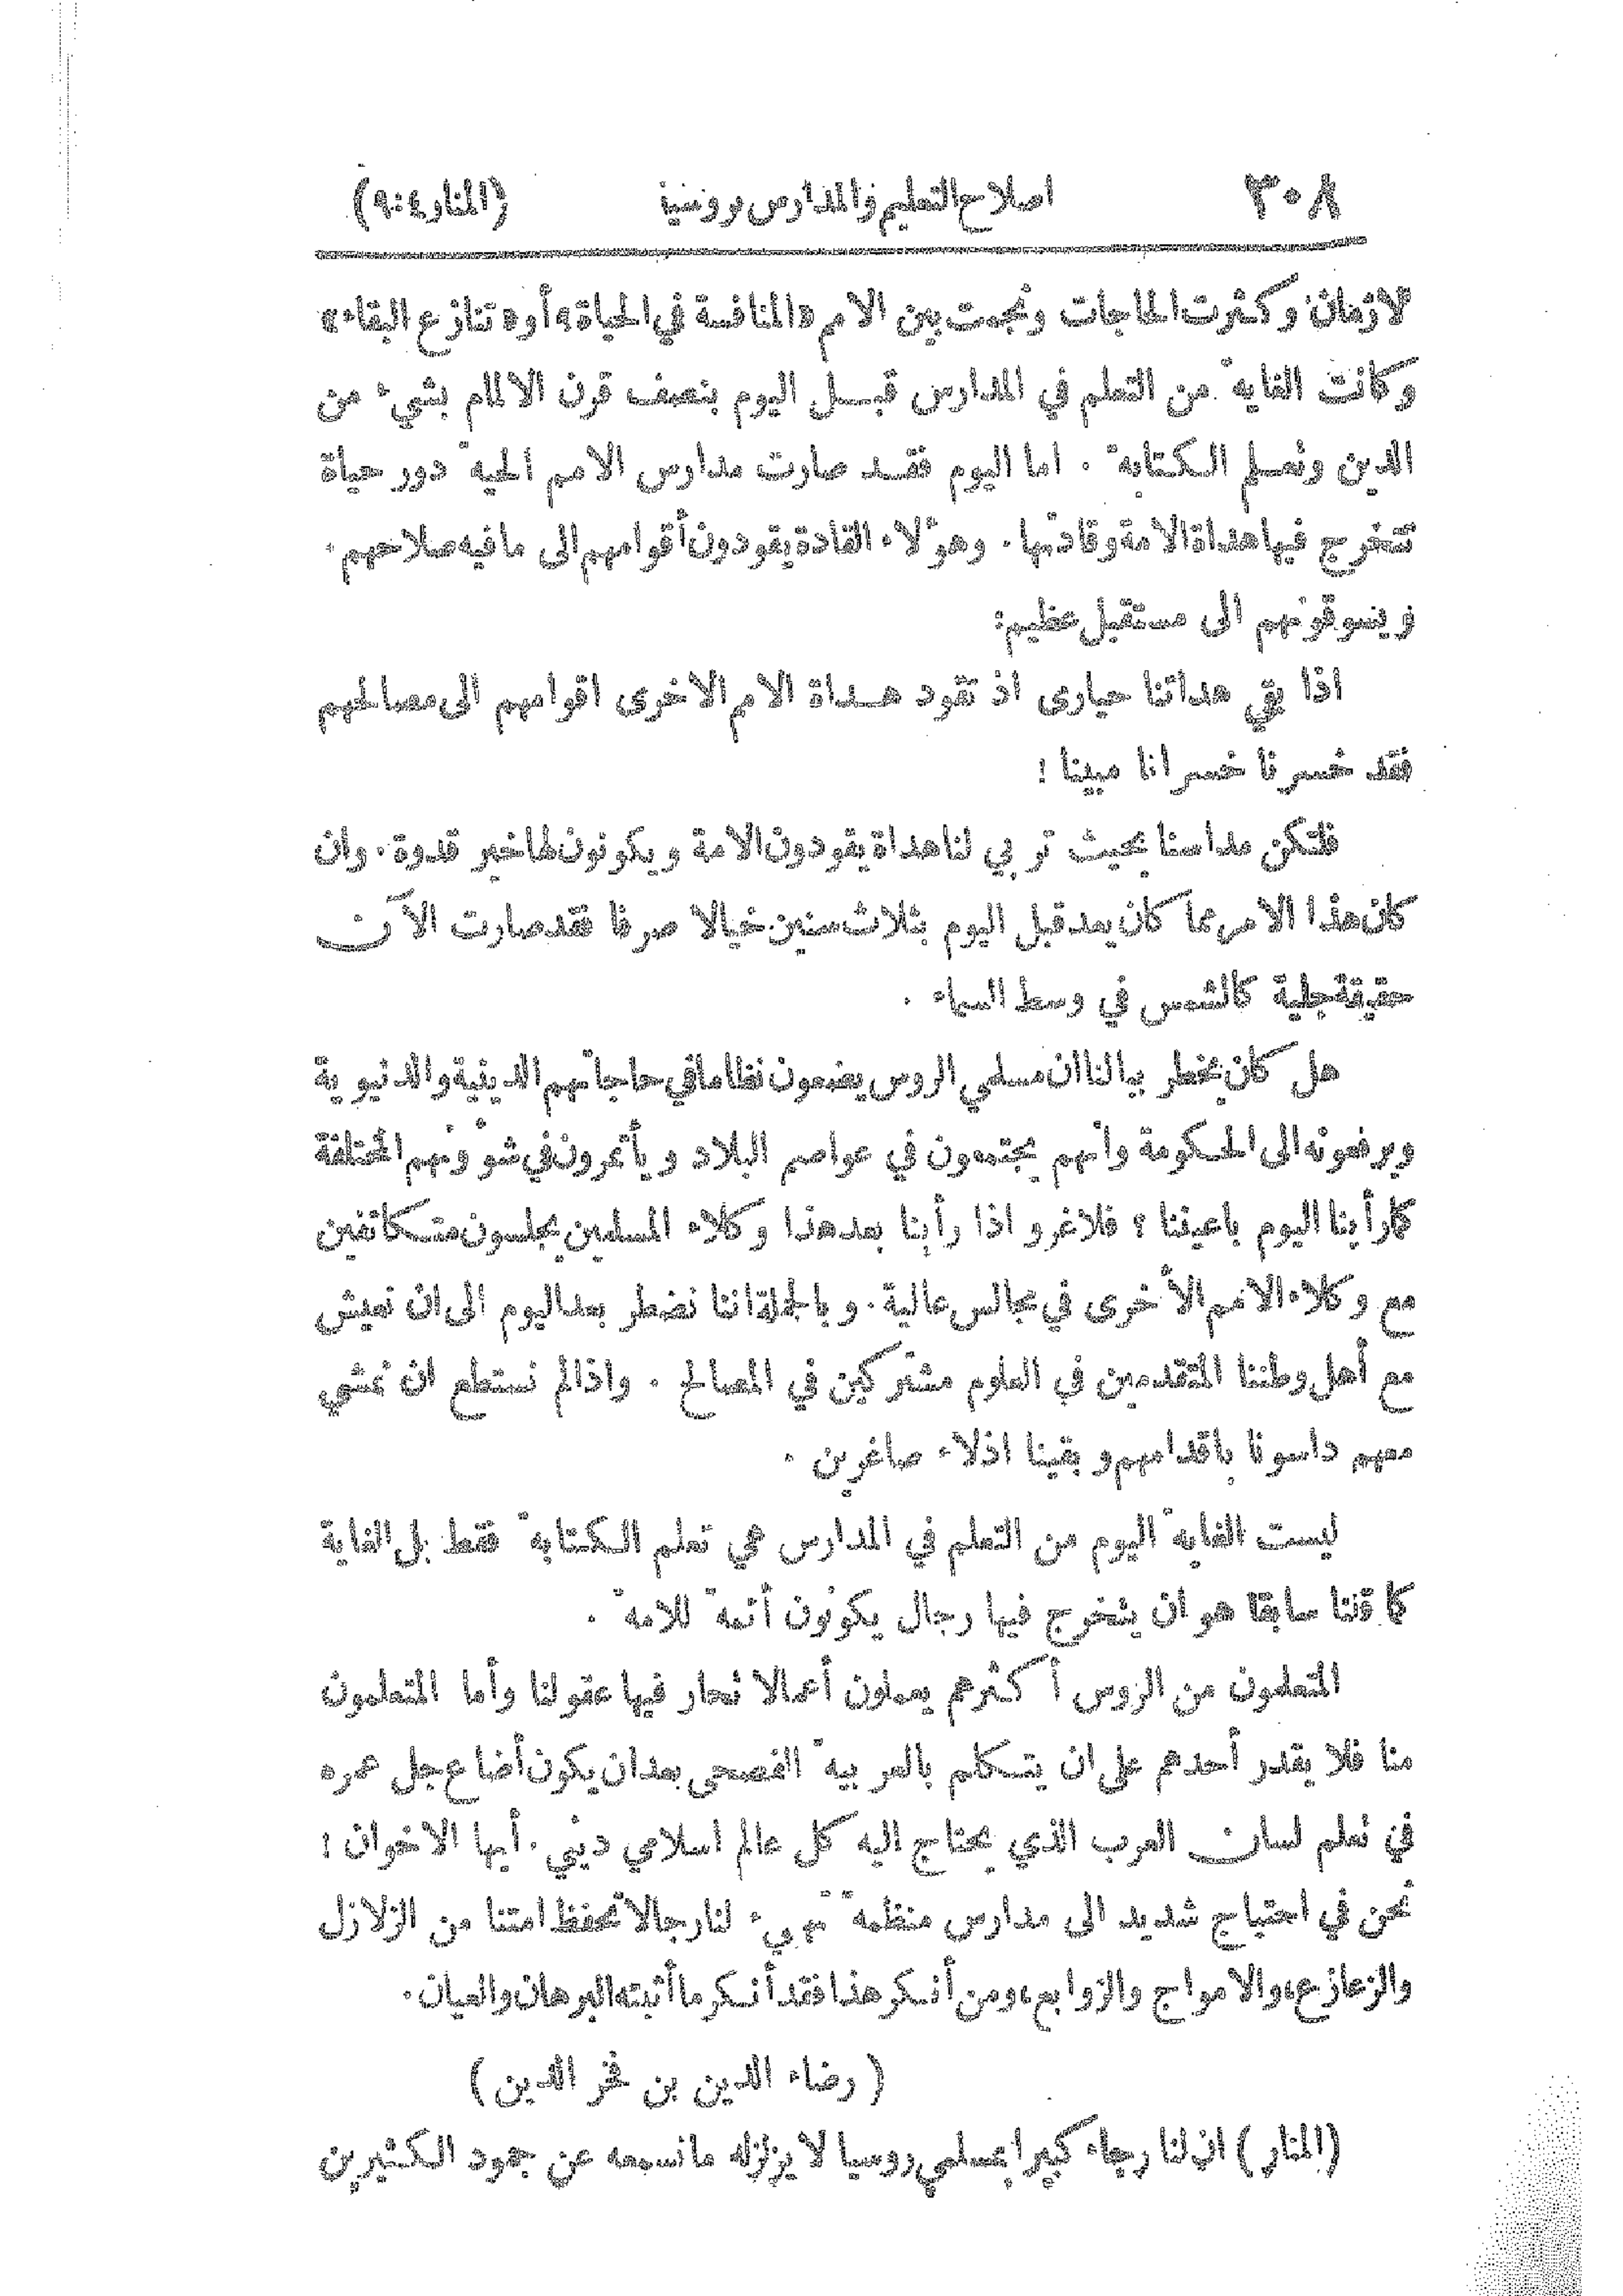 ٣٠٨ اصلاح التعليم والمدارس بروسية (المنار ٤:٩)
لازمان وكثرت الحاجات ونجمت بين الامم «المنافسة في الحياة» أو «تنازع البقاء»
وكانت الغاية من التعلم في المدارس قبل اليوم بنصف قرن الالمام بشيء من
الدين وتعلم الكتابة . اما اليوم فقد صارت مدارس الامم الحية دور حياة
تتخرج فيها هداة الامة وقادتها . وهؤلاء القادة يقودون أقوامهم الى ما فيه صلاحهم .
ويسوقونهم الى مستقبل عظيم :
اذا بقي هداتنا حيارى اذ تقود هداة الامم الاخرى اقوامهم الى مصالحهم
فقد خسرنا خسرانا مبينا !
فلتكن مداسنا بحيث تربي لنا هداة يقودون الامة ويكونون لها خير قدوة . وان
كان هذا الامر مما كان يعد قبل اليوم بثلاث سنين خيالا صرفا فقد صارت الآن
حقيقة جلية كالشمس في وسط السماء .
هل كان يخطر ببالنا ان مسلمي الروس يضعون نظاما في حاجاتهم الدينية والدنيوية
ويرفعونه الى الحكومة وانهم يجتمعون في عواصم البلاد ويأتمرون في شؤونهم المختلفة
كما رأينا اليوم باعيننا ؟ فلا غرو اذا رأينا بعد هذا وكلاء المسلمين يجلسون متكاتفين
مع وكلاء الامم الأخرى في مجالس عالية . وبالجملة اننا نضطر بعد اليوم الى ان نعيش
مع أهل وطننا المتقدمين في العلوم مشتركين في المصالح . واذا لم نستطع ان نمشي
معهم داسونا باقدامهم وبقينا اذلاء صاغرين .
ليست الغاية اليوم من التعلم في المدارس هي تعلم الكتابة فقط بل الغاية
كما قلنا سابقا هو ان يتخرج فيها رجال يكونون أئمة للامة .
المتعلمون من الروس أكثرهم يعملون أعمالا تحار فيها عقولنا وأما المتعلمون
منا فلا يقدر أحدهم على ان يتكلم بالعربية الفصحى بعد ان يكون أضاع جل عمره
في تعلم لسان العرب الذي يحتاج اليه كل عالم اسلامي ديني . أيها الاخوان :
نحن في احتياج شديد الى مدارس منظمة تهيء لنا رجالا تحفظ امتنا من الزلازل
والزعازع، والامواج والزوابع، ومن أنكر هذا فقد أنكر ما أثبته البرهان والعيان .
( رضاء الدين بن فخر الدين )
(المنار) ان لنا رجاء كبيرا بمسلمي روسيا لا يزلزله ما نسمعه عن جمود الكثيرين